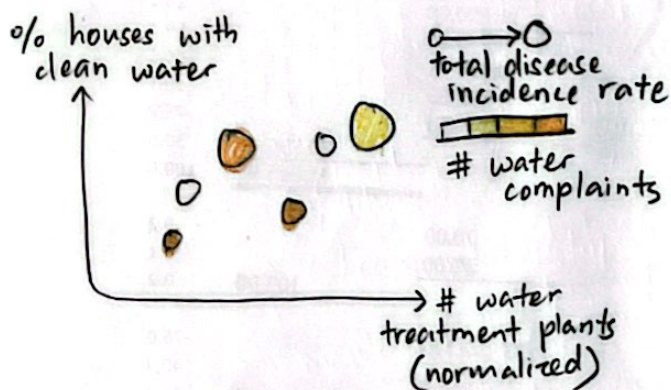 % houses with
clean water
total disease
incidence rate
# water
complaints
# water
treatment plants
(normalized)